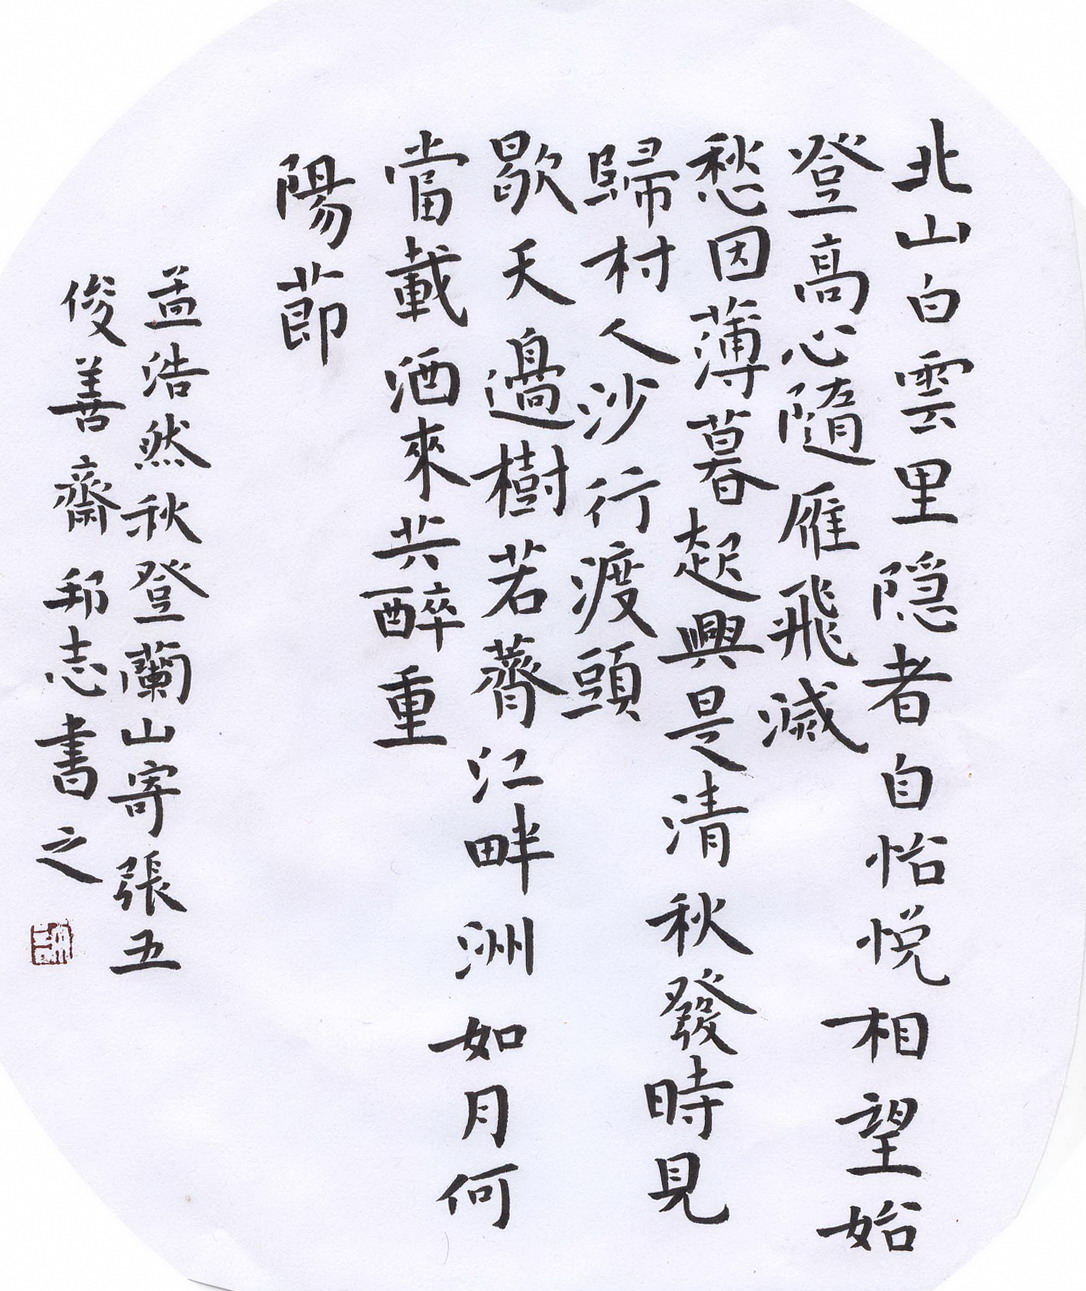 北山白雲里隐者自怡悦相望始
登高心隨雁飛滅
愁因薄暮起興是清秋發時見
歸村人沙行渡頭
歇天邊樹若薺江畔洲如月何
當載酒來共醉重
陽節
孟浩然秋登蘭山寄張五
俊善齋邦志書之